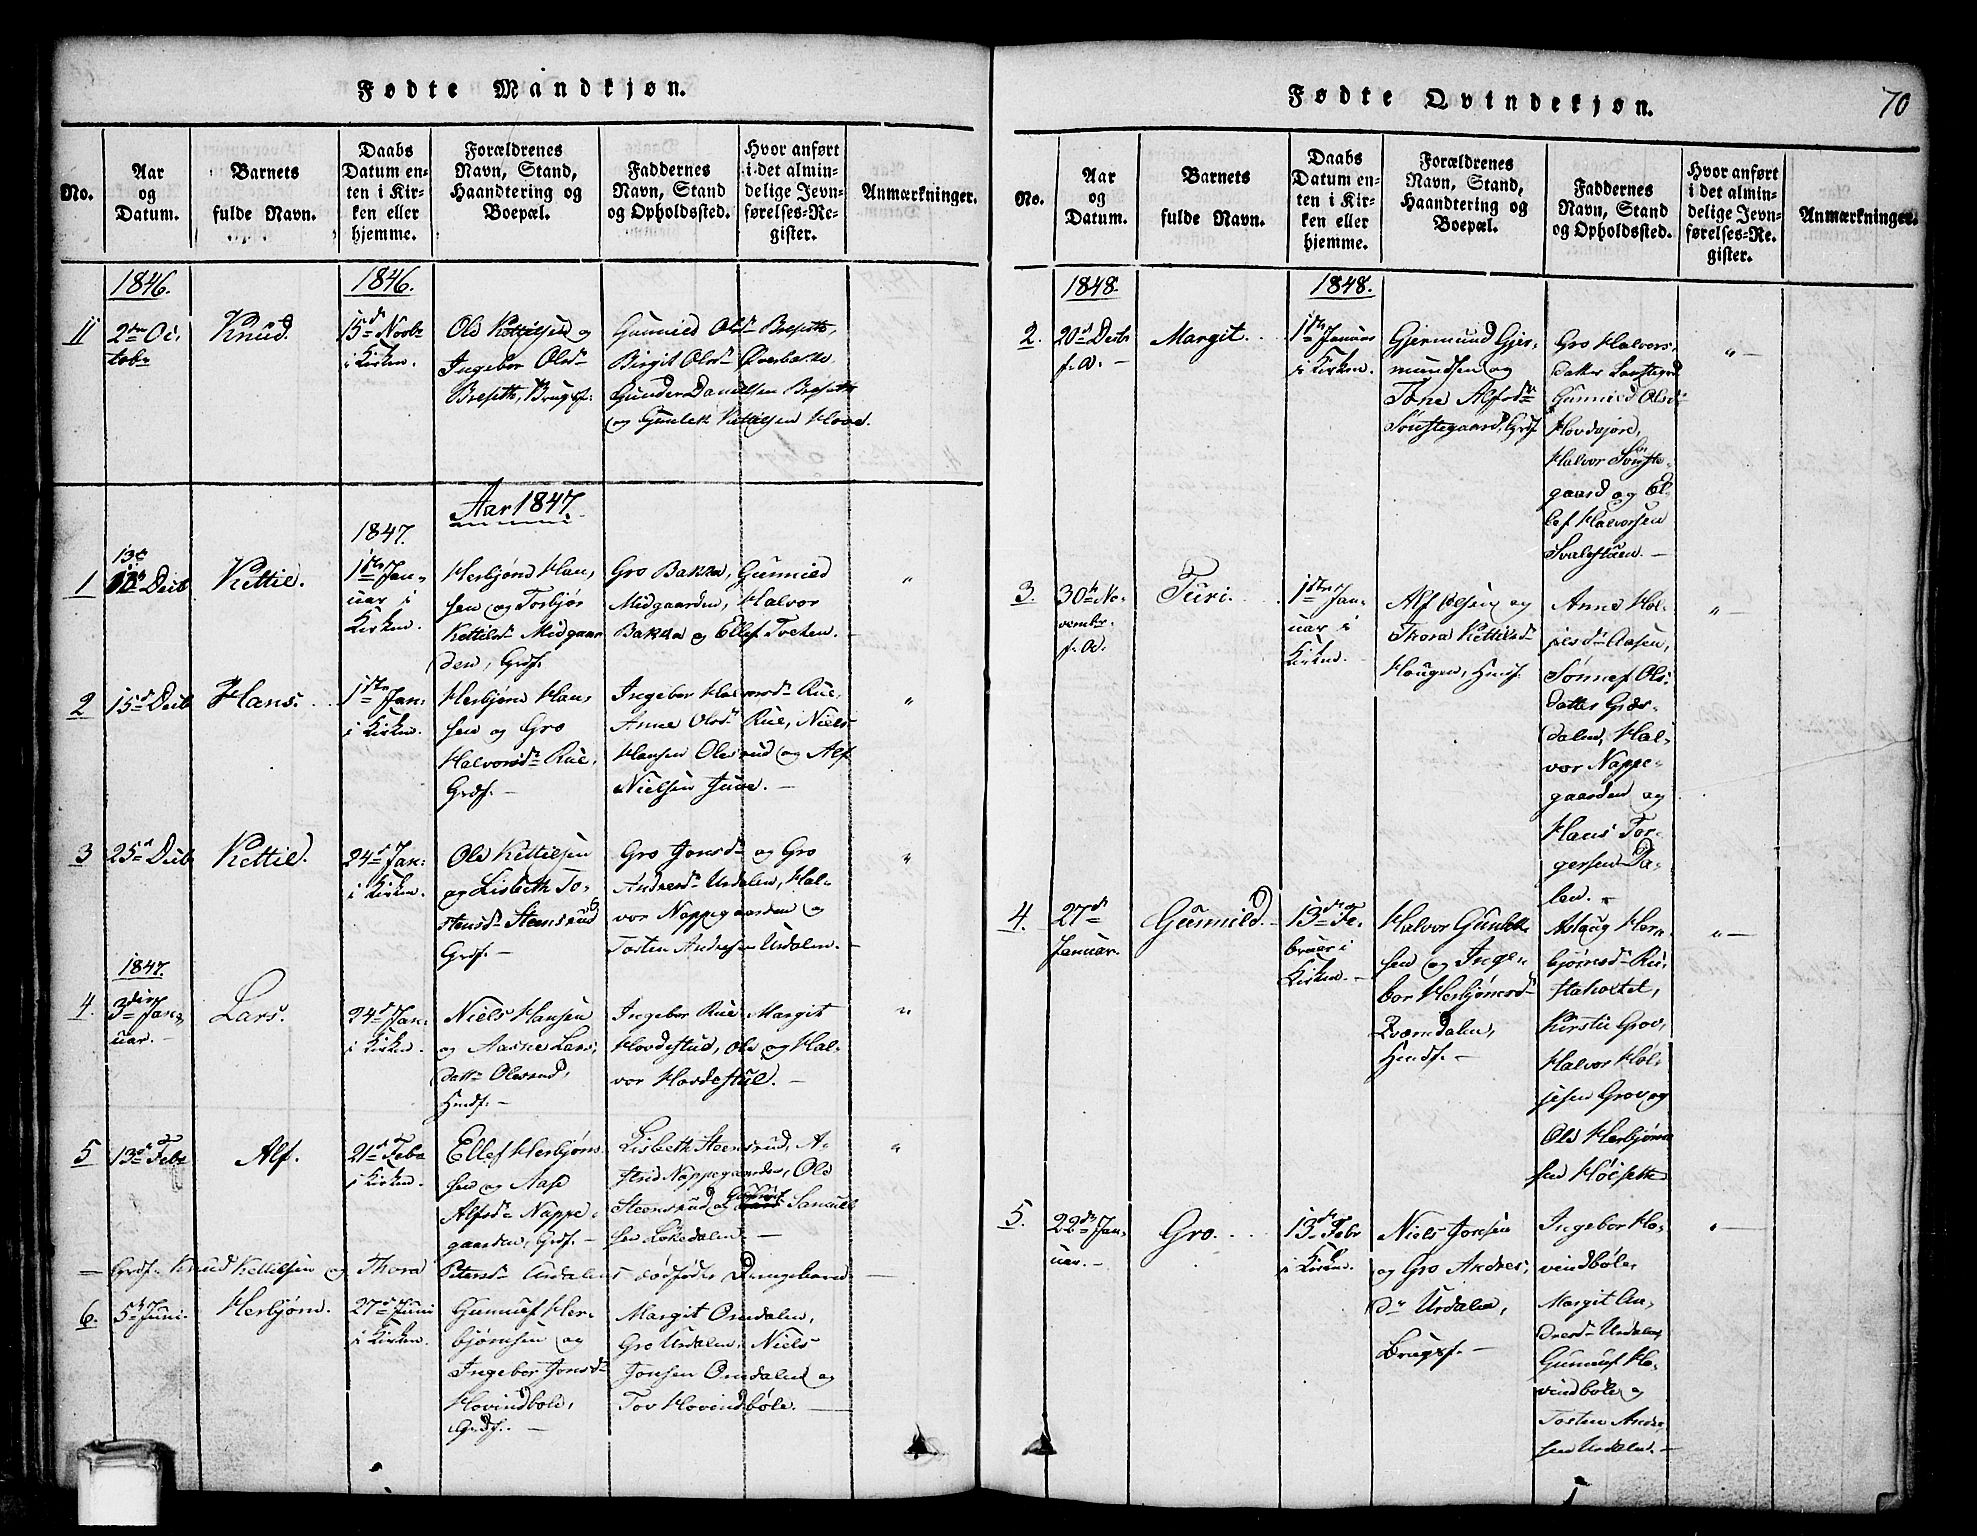 Fødte Mandkjøn.
No.
Aar
og
Datum.
Barnets
fulde Navn.
Daabs
Datum en-
ten i Kir-
ken eller
hjemme.
Forældrenes
Navn, Stand,
Haandtering og
Boepæl.
Faddernes
Navn, Stand
og Opholdssted.
Hvor anført
i det almin-
delige Jevn-
førelses-Re-
gister.
Anmærkninger.
1846.
1846.
11
2den Oc-
tobr
Knud.
15de Novbr
i Kirken.
Ole Kettilsen og
Ingebor Olsdr
Bresetth, Brugsf.
Gunnild Olsdr Bresetth,
Birgit Olsdr Øverbakke
Gunder Danielsen Bresetth
og Gunlek Kettilsen Hove.
Aar 1847.
1847.
1
13de
Decb
Kettil.
1ste Jan-
uar i
Kirken.
Herbjørn Han-
sen og Torbjør
Kettilsdr Midgaar
den, Grdf.
Gro Bakka, Gunnild
Midgaarden, Halvor
Bakka og Ellef Tveten.
"
2
15de Decb
Hans.
1ste Jan.
i Kirken.
Herbjørn Han-
sen og Gro
Halvorsdr Rue,
Grdf. —
Ingebor Halvorsdr Rue,
Anne Olsdr Rue, Niels
Hansen Olesrud og Alf
Nielsen Juve. —
"
3
25de Decb
Kettil.
24de Jan.
i Kirken.
Ole Kettilsen
og Lisbeth To-
stensdr Steensrud
Grdf. —
Gro Jonsdr og Gro
Andresdr Urdalen, Hal-
vor Nappegaarden og
Tosten Andresen Urdalen. —
"
1847.
4.
3die Jan-
uar. —
Lars.
24de Jan.
i Kirken.
Niels Hansen
og Aaste Lars-
datr Olesrud,
Huusf. —
Ingebor Rue, Margit
Hovdestul, Ole og Hal-
vor Hovdestul. —
"
5
13de Febr
Alf.
21de Febr
i Kirken.
Ellef Herbjøns-
sen og Aase
Alfsdr Nappe-
gaarden, Grdf. —
Lisbeth Steensrud, A-
strid Nappegaarden, Ole
Steensrud og Samuel
sen Løkedalen. —
"
— Grdf. Knud Kettilsen og Thora Petersdr Urdalens dødfødte Drengebarn. —
6.
5te Juni.
Herbjørn.
27de Juni
i Kirken.
Gunnuf Her-
bjørnsen og
Ingebor Jonsdr
Hovindbøle,
Grdf. —
Margit Omdalen,
Gro Urdalen, Niels
Jonsen Omdalen og
Tov Hovindbøle. —
Fødte Qvindekjøn.
70
No.
Aar
og
Datum.
Barnets
fulde Navn.
Daabs
Datum en-
ten i Kir-
ken eller
hjemme.
Forældrenes
Navn, Stand,
Haandtering og
Boepæl.
Faddernes
Navn, Stand
og Opholdssted.
Hvor anført
i det almin-
delige Jevn-
førelses-Re-
gister.
Anmærkninger.
1848.
1848.
2.
20de Decbr
f. A. —
Margit.
1ste Januar
i Kirken.
Gjermund Gjer-
mundsen og
Tone Alfsdr
Sønstegaard, Grdf
Gro Halvors-
datter
Gunnild Olsdr
Hovdejore,
Halvor Sønste-
gaard og El-
lef Halvorsen
Svalestuen. —
" —
3.
30te No-
vembr.
f. A.
Turi.
1ste Jan-
uar i
Kirken. —
Alf Olsen og
Thora Kettilsd
Haugen, Huusf.
Anne Hol-
jesdr Aasen,
Sønnef Ols-
datter Græs-
dalen, Hal-
vor Nappe-
gaarden og
Hans Tor-
gersen Da-
len. —
" —
4.
27de
Januar.
Gunnild.
13de Fe-
bruar i
Kirken. —
Halvor Gunlek-
sen og Inge-
bor Herbjørnsd
Tveredalen,
Huusf. —
Aslaug Her-
bjørnsdr Ru-
Kirstie Grov,
Halvor Høl-
jesen Grov og
Ole Herbjørn-
sen Høisetth
" —
5.
22de Jan-
uar. —
Gro.
13de Febr
i Kirken.
Niels Jonsen
og Gro Andres-
dr Urdalen,
Brugsf. —
Ingebor Ho-
vindbøle,
Margit An-
dresdr Urdalen,
Gunnuf Ho-
vindbøle og
Tosten Andre-
sen Urdalen. —
" —